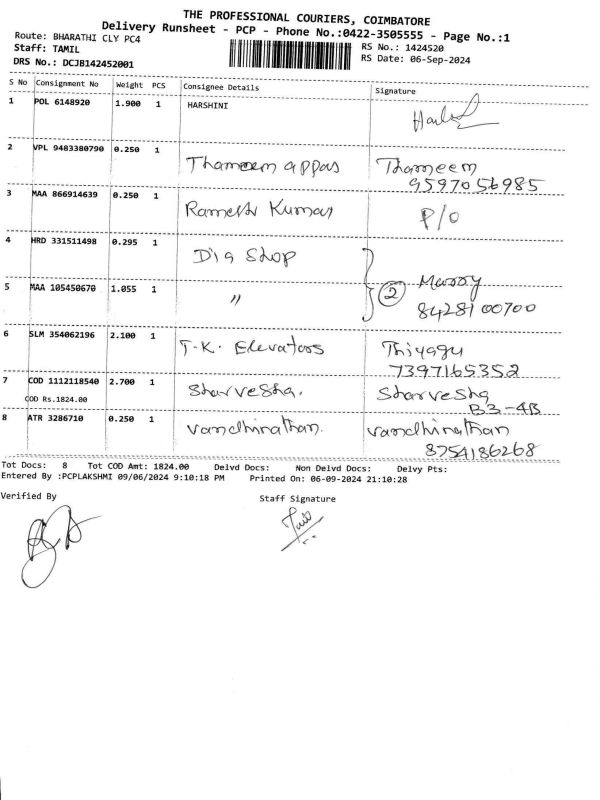 THE PROFESSIONAL COURIERS, COIMBATORE
Delivery Runsheet - PCP - Phone No.:0422-3505555 - Page No.:1
Route: BHARATHI CLY PC4
RS No.: 1424520
Staff: TAMIL
RS Date: 06-Sep-2024
DRS No.: DCJB142452001
S No Consignment No Weight PCS Consignee Details Signature
1 POL 6148920 1.900 1 HARSHINI
2 VPL 9483380790 0.250 1 Thameem appas Thameem
9597056985
3 MAA 866914639 0.250 1 Ramesh Kumar P/O
4 HRD 331511498 0.295 1 Dia Shop
5 MAA 105450670 1.055 1 " 2
8428100700
6 SLM 354062196 2.100 1 T.K. Elevators Thiyagu
7397165352
7 COD 1112118540 2.700 1 Sharvesha. Sharvesha
COD Rs.1824.00 B3-4B
8 ATR 3286710 0.250 1 vandhinathan. vandhinathan
8754186268
Tot Docs: 8 Tot COD Amt: 1824.00 Delvd Docs: Non Delvd Docs: Delvy Pts:
Entered By :PCPLAKSHMI 09/06/2024 9:10:18 PM Printed On: 06-09-2024 21:10:28
Verified By Staff Signature